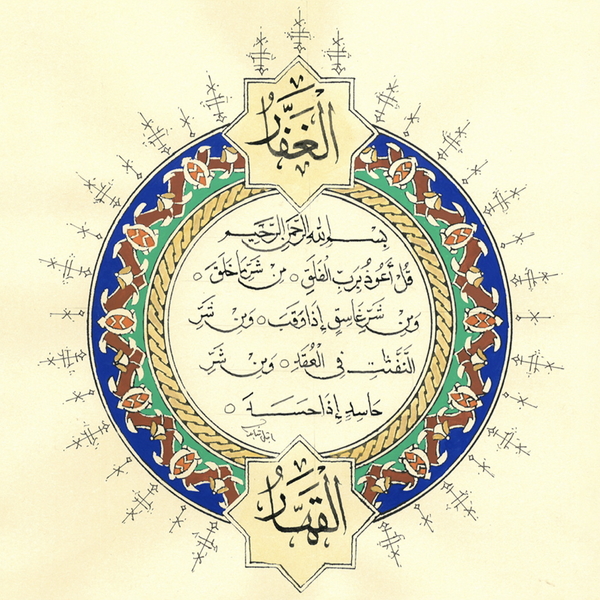 الغَفَّارُ
بسم الله الرحمن الرحيم
قُلْ أَعُوذُ بِرَبِّ الفَلَقِ ○ مِن شَرِّ مَا خَلَقَ ○
وَمِن شَرِّ غَاسِقٍ إِذَا وَقَبَ ○ وَمِن شَرِّ
النَّفَّٰثَٰتِ فِى الْعُقَدِ ○ وَمِن شَرِّ
حَاسِدٍ إِذَا حَسَدَ ○
القَهَّارُ